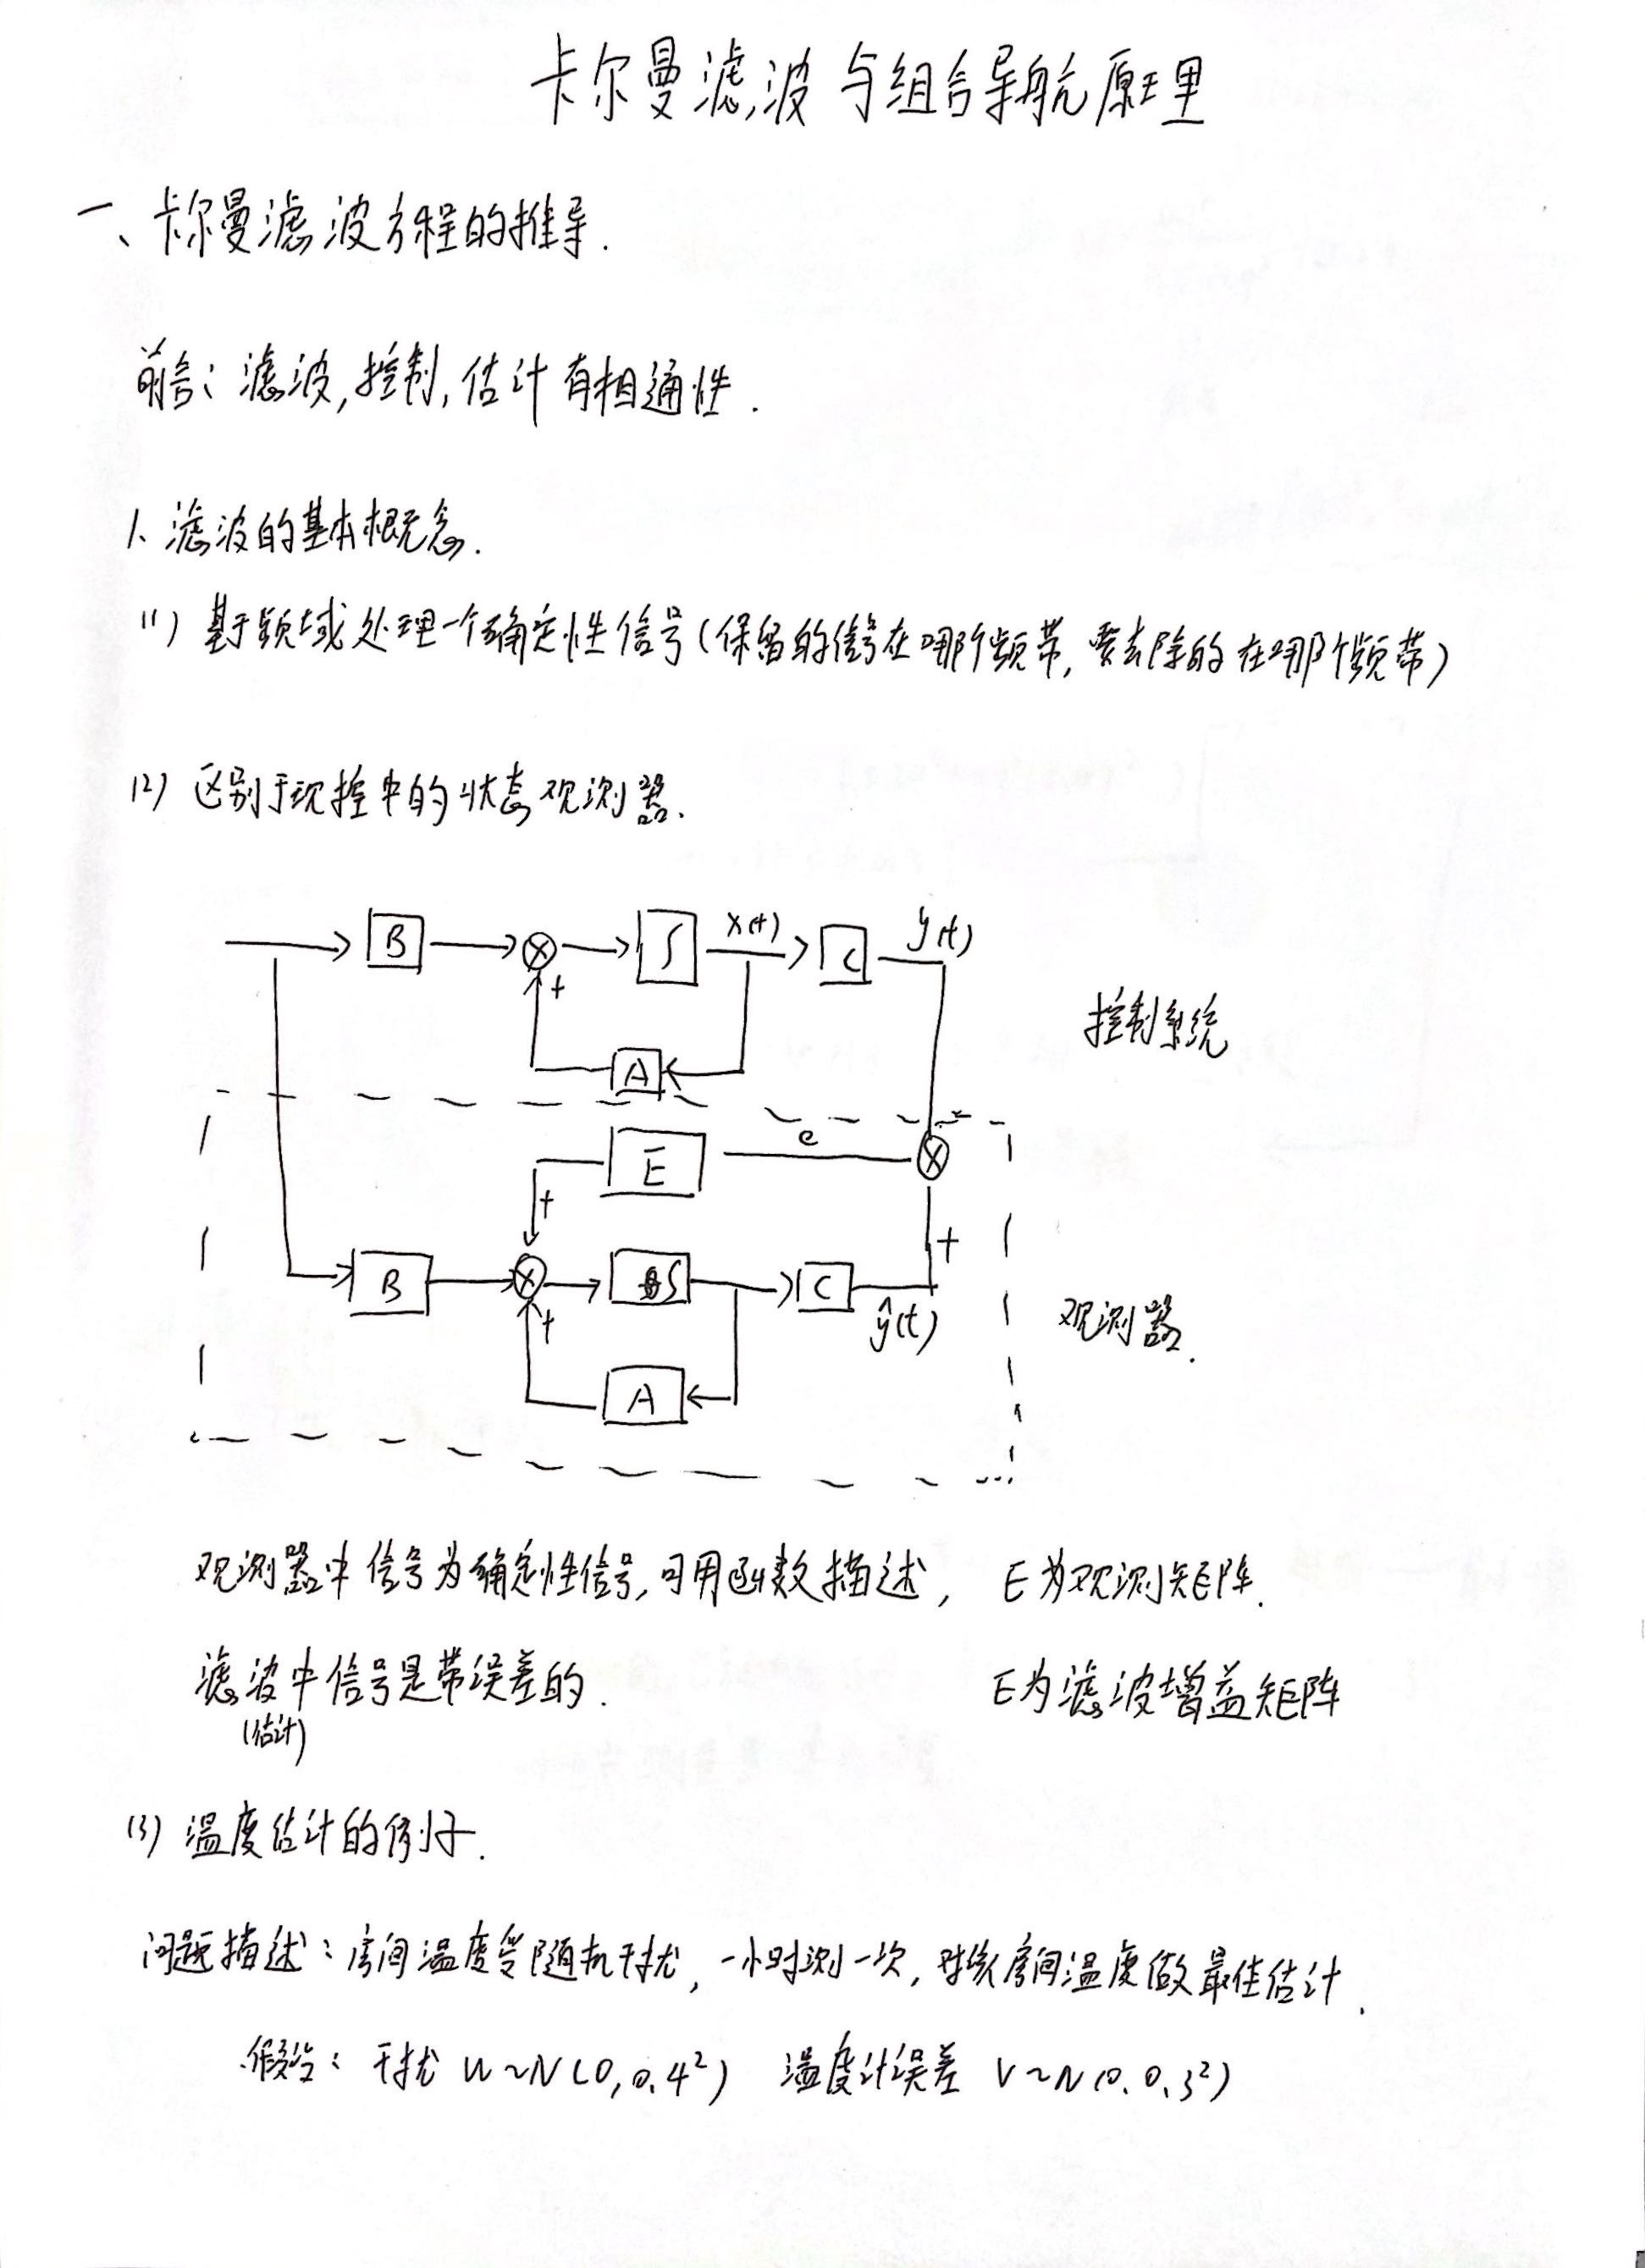 卡尔曼滤波与组合导航原理
一、卡尔曼滤波方程的推导.
前言: 滤波, 控制, 估计有相通性.
1. 滤波的基本概念.
(1) 基于频域处理一个确定性信号(保留的信号在哪个频带, 要去除的在哪个频带)
(2) 区别于现控中的状态观测器.
B
∫
x(t)
C
y(t)
+
A
控制系统
E
e
+
+
B
∫
C
ŷ(t)
+
A
观测器.
观测器中信号为确定性信号, 可用函数描述, E为观测矩阵.
滤波中信号是带误差的. E为滤波增益矩阵
(估计)
(3) 温度估计的例子.
问题描述: 房间温度受随机干扰, 一小时测一次, 对该房间温度做最佳估计.
假设: 干扰 W~N(0, 0.4²) 温度计误差 V~N(0, 0.3²)